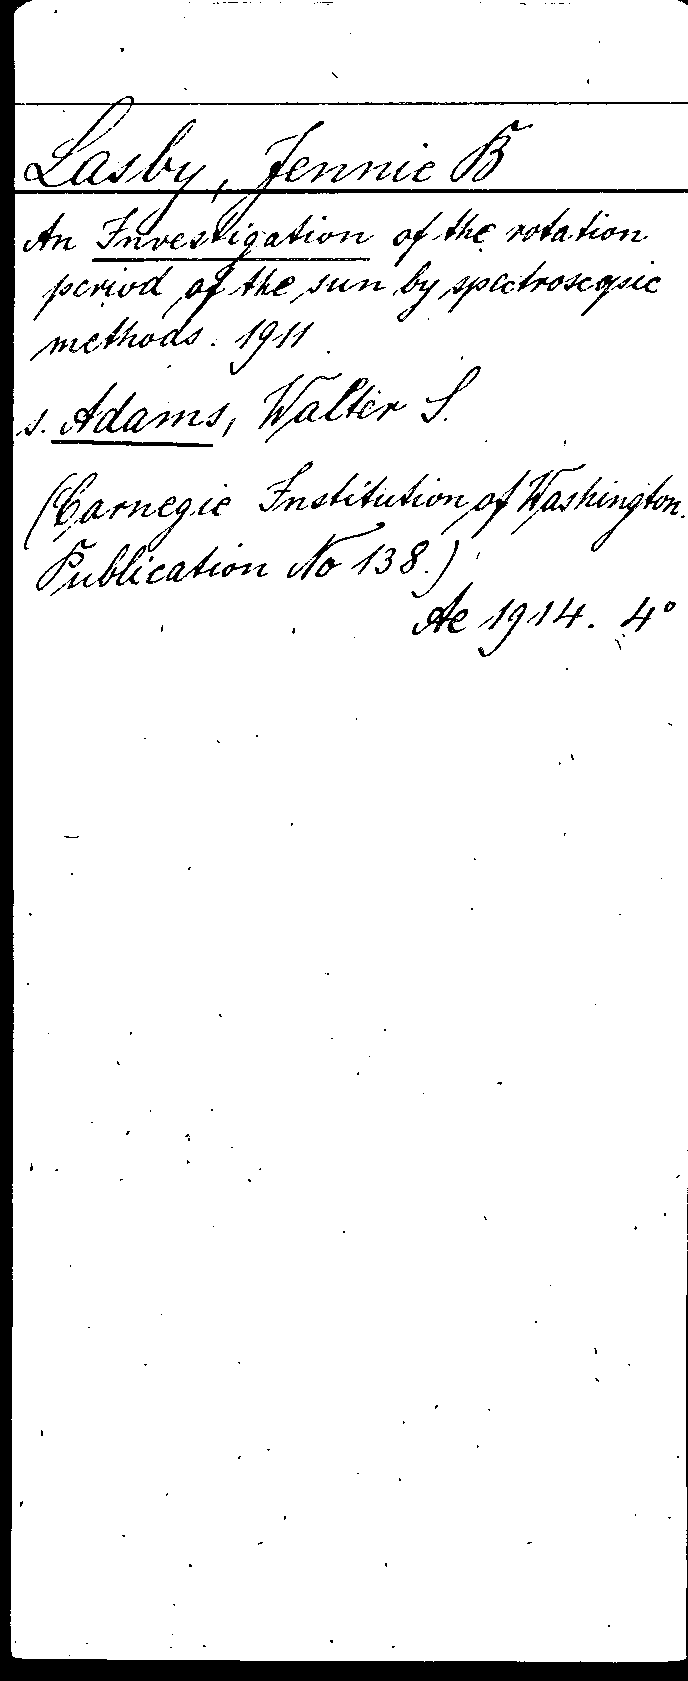 Lasby, Jennie B
An Investigation of the rotation
period of the sun by spectroscopic
methods. 1911
s. Adams, Walter S.
(Carnegie Institution of Washington.
Publication No 138.)
Ae 1914. 4°